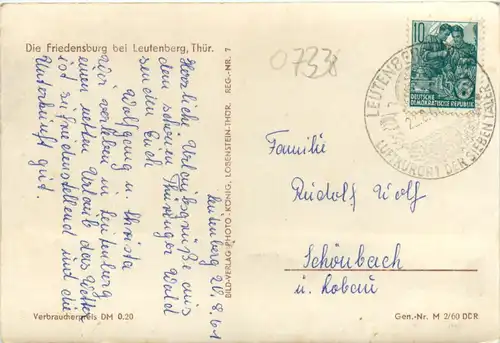 Die Friedensburg bei Leutenberg, Thür.
Leutenberg 20.8.61
Herzliche Urlaubsgrüße aus
dem schönen Thüringer Wald
senden Euch
Wolfgang u. Christa
Wir verleben in Leutenberg
einen netten Urlaub das Wetter
ist zufriedenstellend und die
Unterkunft gut.
Verbraucherpreis DM 0.20
BILD-VERLAG PHOTO-KÖNIG, LOBENSTEIN-THÜR. REG.-NR. 7
0738
10
DEUTSCHE
DEMOKRATISCHE REPUBLIK
LEUTENBERG
LUFTKURORT DER SIEBEN TÄLER
Familie
Rudolf Wolf
Schönbach
u. Löbau
Gen.-Nr. M 2/60 DDR